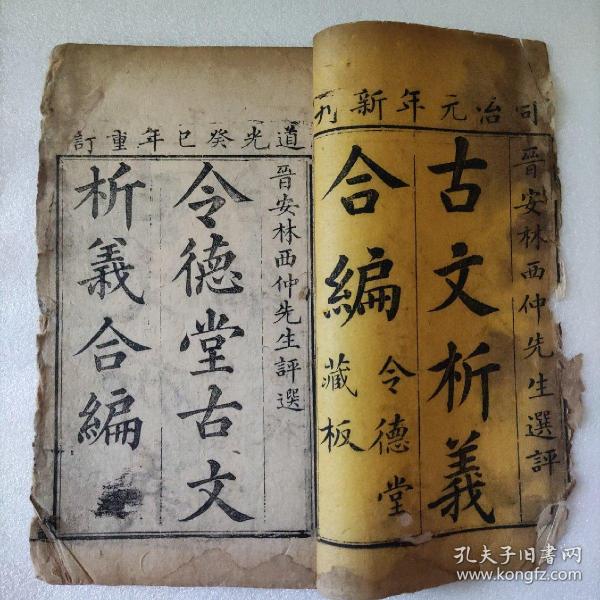 同治元年新刋
晉安林西仲先生選評
古文析義
合編
令德堂
藏板
道光癸巳年重訂
晉安林西仲先生評選
令德堂古文
析義合編
孔夫子旧书网
www.kongfz.com